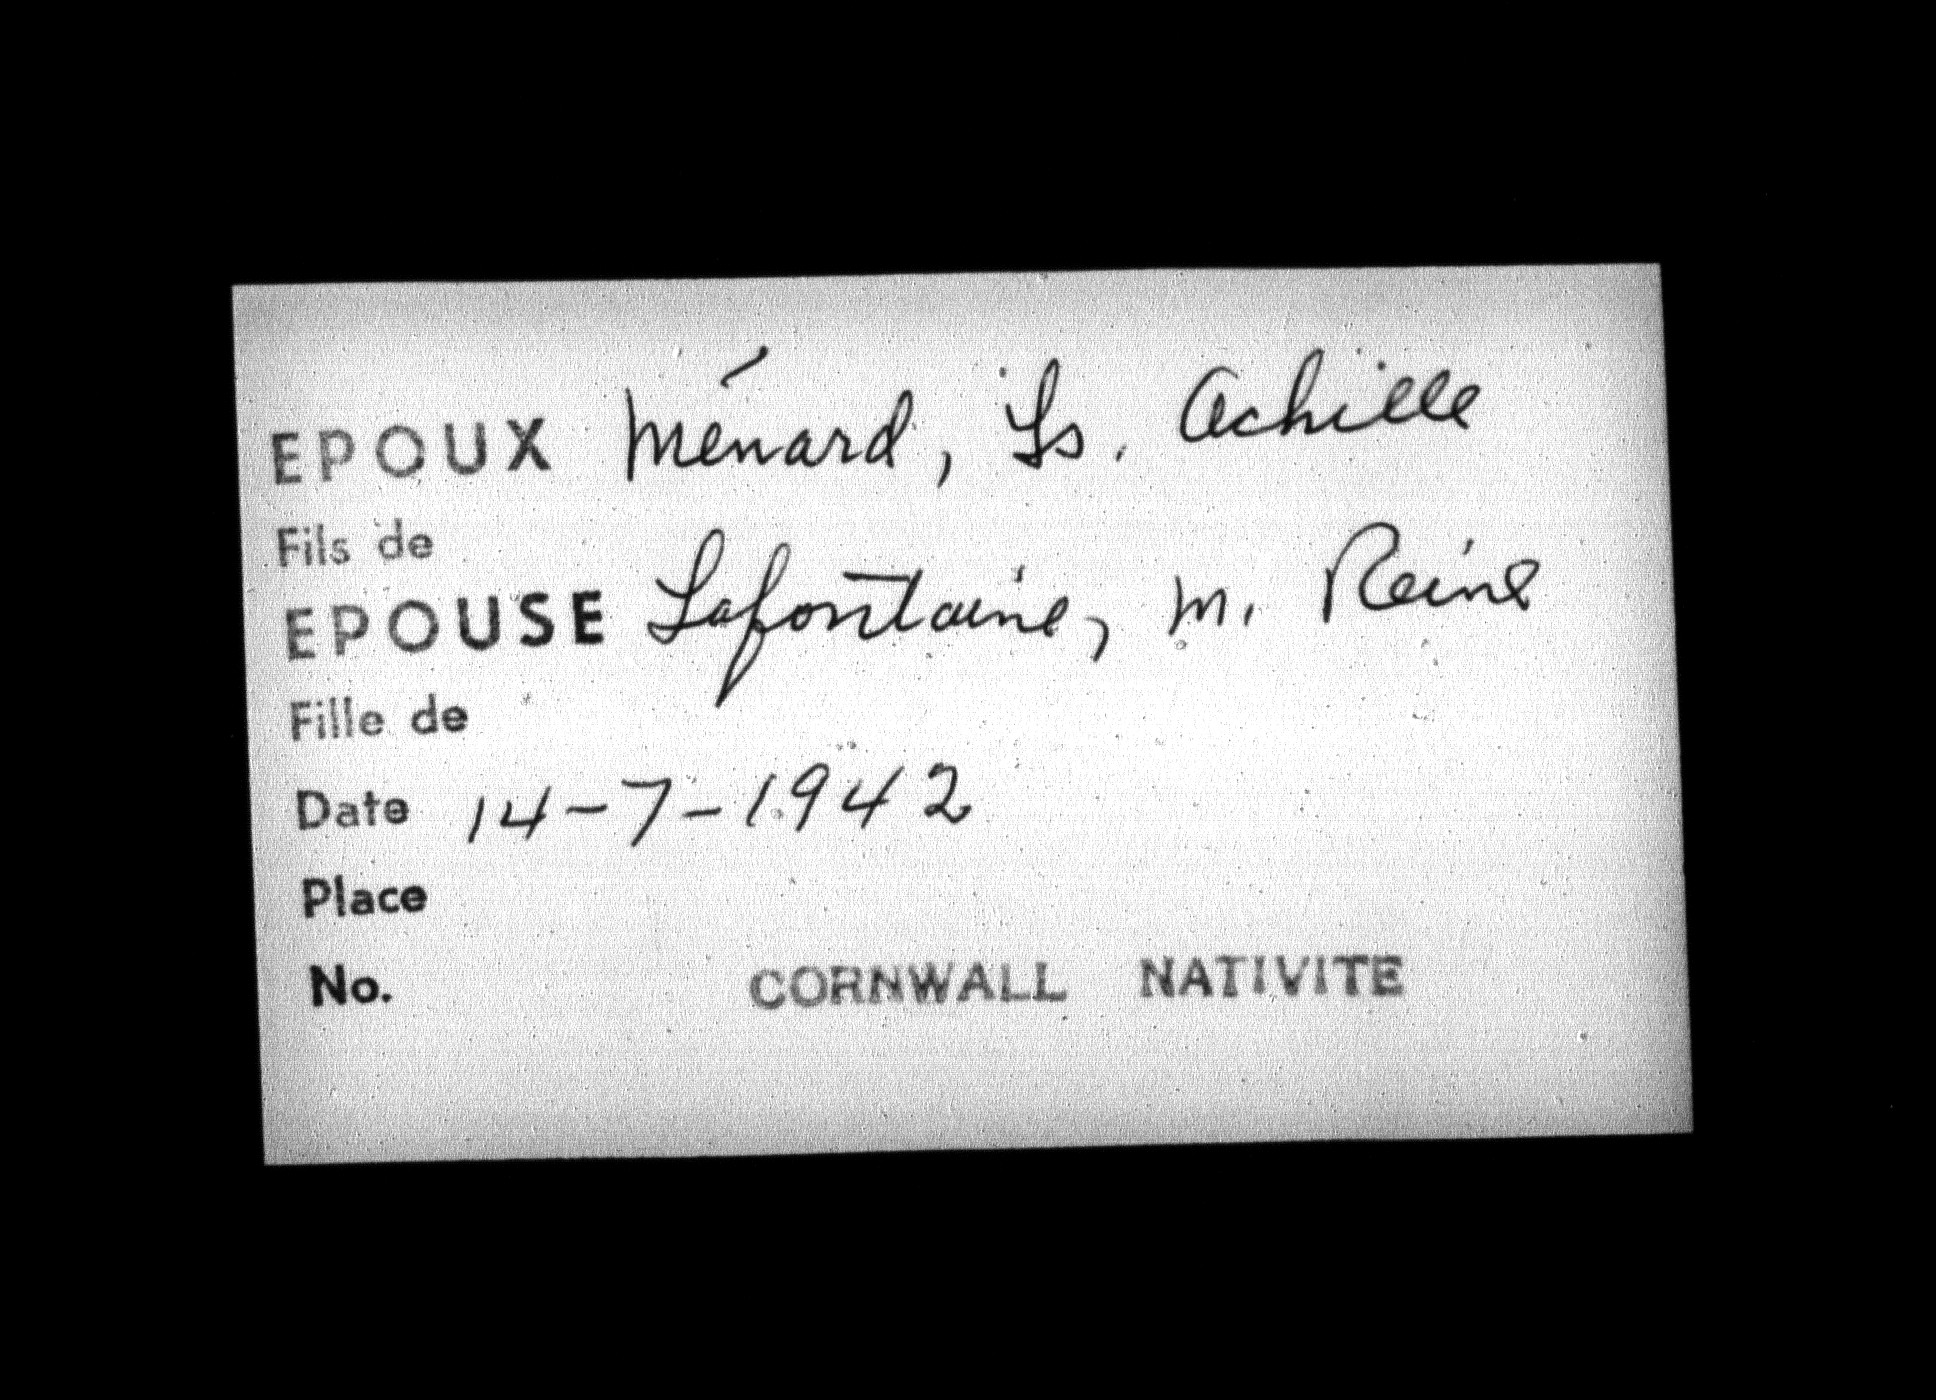 EPOUX Ménard, Ls. Achille
Fils de
EPOUSE Lafontaine, M. Reine
Fille de
Date 14-7-1942
Place
No. CORNWALL NATIVITE